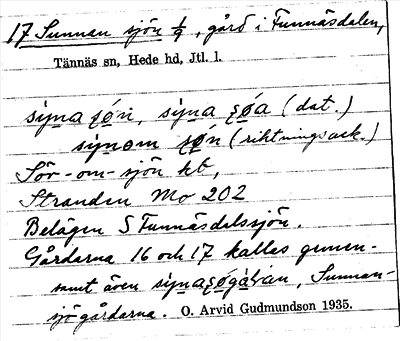 17 Sunnan sjön 1/9, gård i Funnäsdalen,
Tännäs sn, Hede hd, Jtl. l.
syna sǿn, syna sǿa (dat.)
synom sǿn (riktningsack.)
Sör-om-sjön kt,
Stranden Mo 202
Belägen S Funnäsdalssjön.
Gårdarna 16 och 17 kallas gemen-
samt även synasǿgàłan, Sunnan-
sjögårdarna. O. Arvid Gudmundson 1935.